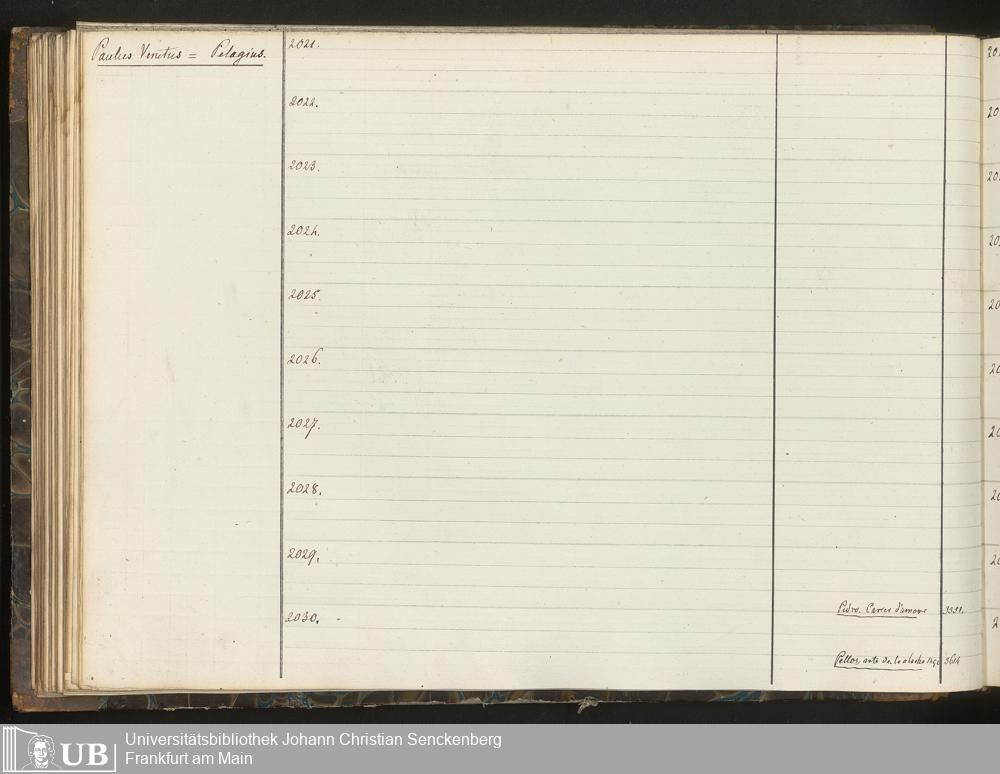 Paulus Venetus = Pelagius.
2021.
2022.
2023.
2024.
2025.
2026.
2027.
2028.
2029.
2030.
Pedro. Carcer d'amore
Pellos, arte de
UB
Universitätsbibliothek Johann Christian Senckenberg
Frankfurt am Main